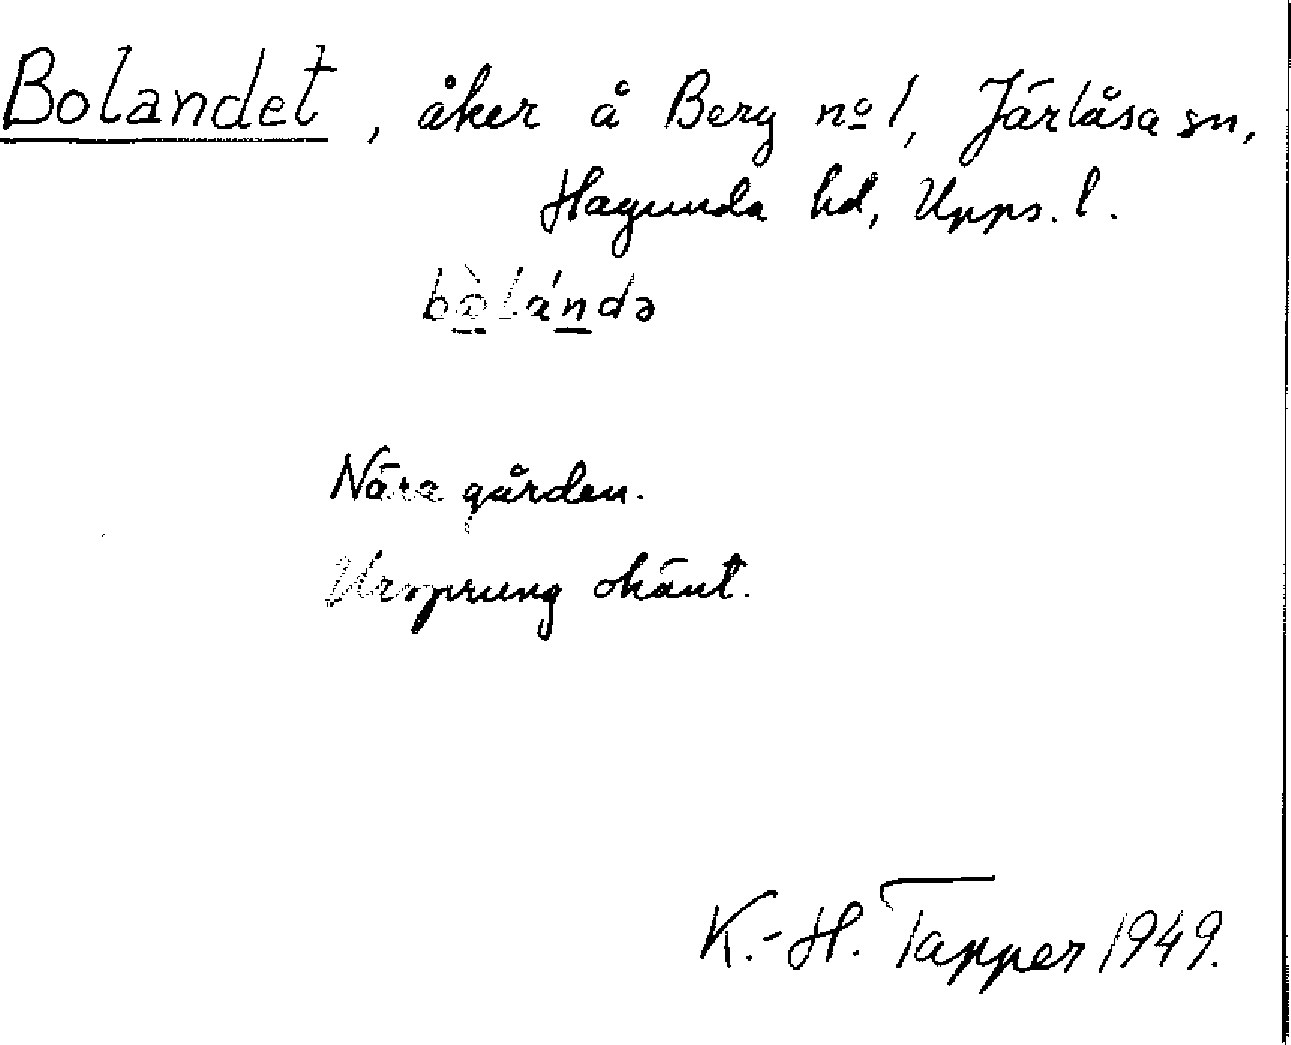 Bolandet, åker å Berg nº 1, Järlåsa sn,
Hagunda hd, Upps. l.
Nära gården.
Ursprung okänt.
K.-H. Tapper 1949.